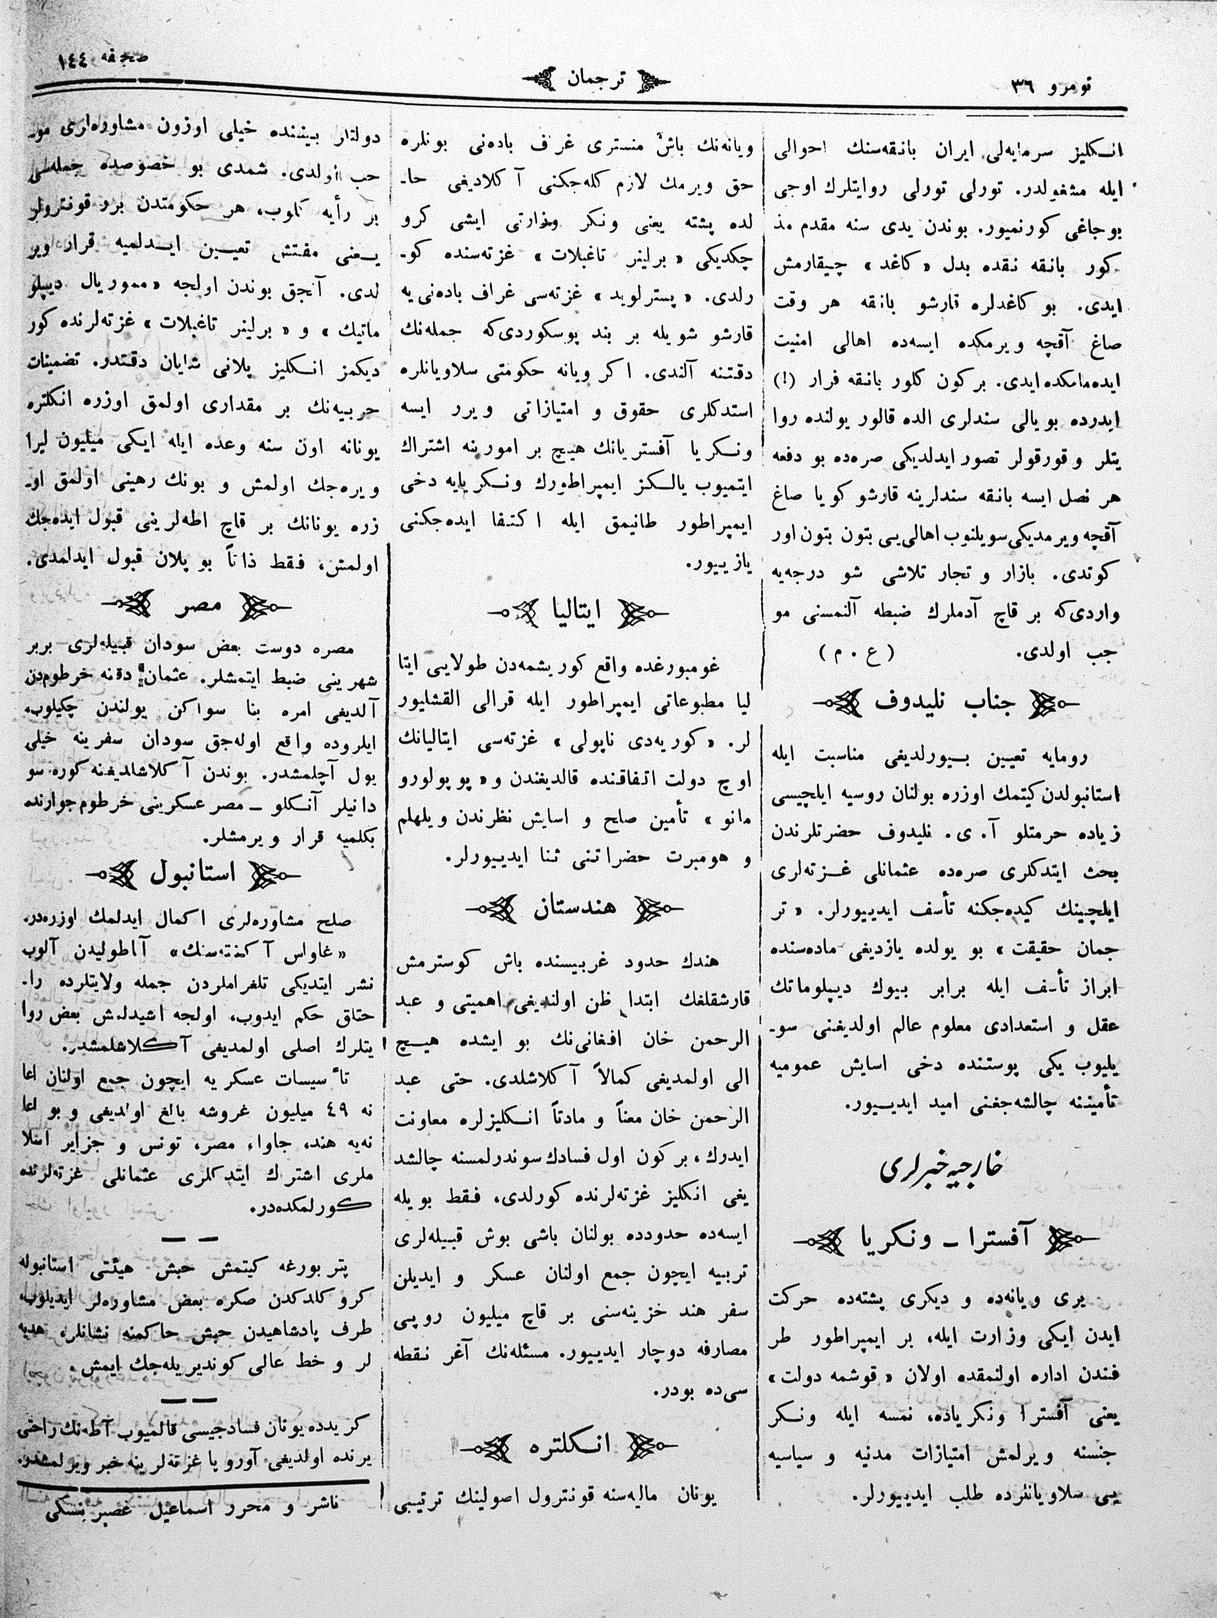 نومرو ٣٦
ترجمان
صحیفه ١٤٤
انكلیز سرمایه‌لی ایران بانقه‌سنك احوالی
ایله مشغولدر. تورلی تورلی روایتلرك اوجی
بوجاغی كورنمیور. بوندن یدی سنه مقدم مذ
كور بانقه نقده بدل «كاغد» چیقارمش
ایدی. بو كاغدلره قارشو بانقه هر وقت
صاغ آقچه ویرمكده ایسه‌ده اهالی امنیت
ایده‌مامكده‌ایدی. بركون كلور بانقه فرار (!)
ایدرده بویالی سندلری الده قالور یولنده روا
یتلر و قورقولر تصور ایدلدیكی صره‌ده بو دفعه
هر نصل ایسه بانقه سندلرینه قارشو كویا صاغ
آقچه ویرمدیكی سویلنوب اهالی‌یی بتون بتون اور
كوتدی. بازار و تجار تلاشی شو درجه‌یه
واردی‌كه بر قاچ آدملرك ضبطه آلنمسنی مو
جب اولدی. (ع . م)
جناب نلیدوف
رومایه تعیین بیورلدیغی مناسبت ایله
استانبولدن كیتمك اوزره بولنان روسیه ایلچیسی
زیاده حرمتلو آ. ی. نلیدوف حضرتلرندن
بحث ایتدكلری صره‌ده عثمانلی غزته‌لری
ایلچینك كیده‌جكنه تأسف ایدییورلر. «تر
جمان حقیقت» بو یولده یازدیغی ماده‌سنده
ابراز تأسف ایله برابر بیوك دیپلوماتك
عقل و استعدادی معلوم عالم اولدیغنی سو-
یلیوب یكی پوستنده دخی اسایش عمومیه
تأمیننه چالشه‌جغنی امید ایدییور.
خارجیه خبرلری
آفسترا - ونكریا
بری ویانه‌ده و دیكری پشته‌ده حركت
ایدن ایكی وزارت ایله، بر ایمپراطور طر
فندن اداره اولنمقده اولان «قوشمه دولت»
یعنی آفسترا ونكریاده، نمسه ایله ونكر
جنسنه ویرلمش امتیازات مدنیه و سیاسیه
یی سلاویانلرده طلب ایدییورلر.
ویانه‌نك باش منستری غراف باده‌نی بونلره
حق ویرمك لازم كله‌جكنی آكلادیغی حا-
لده پشته یعنی ونكر وزارتی ایشی كرو
چكدیكی «برلینر تاغبلات» غزته‌سنده كو-
رلدی. «پسترلوید» غزته‌سی غراف باده‌نی‌یه
قارشو شویله بر بند پوسكوردی‌كه جمله‌نك
دقتنه آلندی. اكر ویانه حكومتی سلاویانلره
استدكلری حقوق و امتیازاتی ویرر ایسه
ونكریا آفستریانك هیچ بر امورینه اشتراك
ایتمیوب یالكز ایمپراطورك ونكریایه دخی
ایمپراطور طانیمق ایله اكتفا ایده‌جكنی
یازییور.
ایتالیا
غومبورغده واقع كوریشمه‌دن طولایی ایتا
لیا مطبوعاتی ایمپراطور ایله قرالی القشلیور
لر. «كوریه‌دی ناپولی» غزته‌سی ایتالیانك
اوچ دولت اتفاقنده قالدیغندن و «پوپولورو
مانو» تأمین صلح و اسایش نظرندن ویلهلم
و هومبرت حضراتنی ثنا ایدییورلر.
هندستان
هندك حدود غربیسنده باش كوسترمش
قارشقلغك ابتدا ظن اولندیغی اهمیتی و عبد
الرحمن خان افغانی‌نك بو ایشده هیچ
الی اولمدیغی كمالاً آكلاشلدی. حتی عبد
الرحمن خان معناً و مادتاً انكلیزلره معاونت
ایدرك، بركون اول فسادك سوندرلمسنه چالشد
یغی انكلیز غزته‌لرنده كورلدی، فقط بویله
ایسه‌ده حدودده بولنان باشی بوش قبیله‌لری
تربیه ایچون جمع اولنان عسكر و ایدیلن
سفر هند خزینه‌سنی بر قاچ میلیون روپی
مصارفه دوچار ایدییور. مسئله‌نك آغر نقطه
سی‌ده بودر.
انكلتره
یونان مالیه‌سنه قونترول اصولینك ترتیبی
دولتلر بیننده خیلی اوزون مشاوره‌لری مو-
جب اولدی. شمدی بو خصوصده جمله‌سی
بر رأیه كلوب، هر حكومتدن برر قونترولر
یعنی مفتش تعیین ایدلمیه قرار ویر
لدی. آنجق بوندن اولجه «مموریال دیپلو
ماتیك» و «برلینر تاغبلات» غزته‌لرنده كور
دیكمز انكلیز پلانی شایان دقتدر. تضمینات
حربیه‌نك بر مقداری اولمق اوزره انكلتره
یونانه اون سنه وعده ایله ایكی میلیون لیرا
ویره‌جك اولمش و بونك رهینی اولمق او-
زره یونانك بر قاچ اطه‌لرینی قبول ایده‌جك
اولمش، فقط ذاتاً بو پلان قبول ایدلمدی.
مصر
مصره دوست بعض سودان قبیله‌لری بربر
شهرینی ضبط ایتمشلر. عثمان دقنه خرطومدن
آلدیغی امره بنا سواكن یولندن چكیلوب،
ایلروده واقع اوله‌جق سودان سفرینه خیلی
یول آچلمشدر. بوندن آكلاشلدیغنه كوره سو
دانیلر آنكلو - مصر عسكرینی خرطوم جوارنده
بكلمیه قرار ویرمشلر.
استانبول
صلح مشاوره‌لری اكمال ایدلمك اوزره‌در.
«غاواس آكنته‌سنك» آناطولیدن آلوب
نشر ایتدیكی تلغرافلردن جمله ولایتلرده را-
حتلق حكم ایدوب، اولجه اشیدلمش بعض روا
یتلرك اصلی اولمدیغی آكلاشلمشدر.
تأسیسات عسكریه ایچون جمع اولنان اعا
نه ٤٩ میلیون غروشه بالغ اولدیغی و بو اعا
نه‌یه هند، جاوا، مصر، تونس و جزایر اسلا
ملری اشتراك ایتدكلری عثمانلی غزته‌لرنده
كورلمكده‌در.
پتربورغه كیتمش حبش هیئتی استانبوله
كرو كلدكدن صكره بعض مشاوره‌لر ایدیلوب،
طرف پادشاهیدن حبش حاكمنه نشانلر، هدیه
لر و خط عالی كوندیریله‌جك ایمش.
كریدده یونان فسادجیسی قالمیوب آطه‌نك راحتی
یرنده اولدیغی آوروپا غزته‌لرینه خبر ویرلمشدر.
ناشر و محرر اسماعیل غصبرنسكی